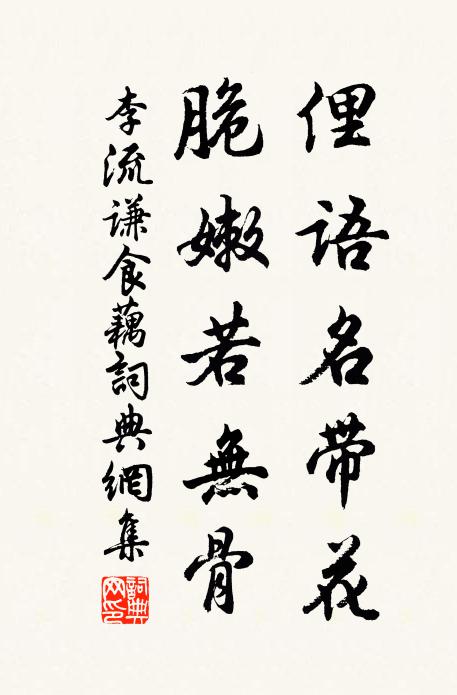 俚语名带花
脆嫩若無骨
李流谦食藕詞典網集
詞典网印